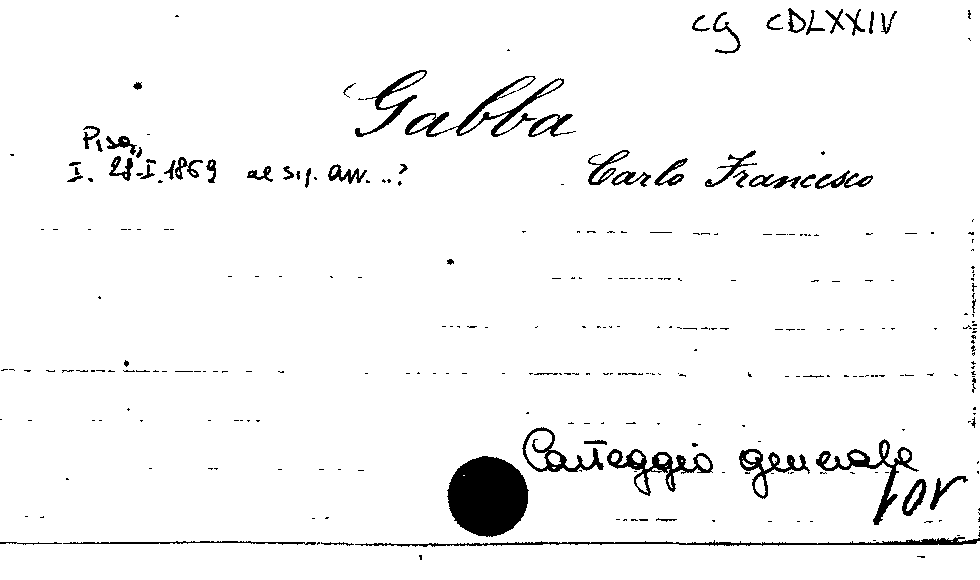 CG CDLXXIV
Gabba
Carlo Francesco
Pisa,
I. 28.I.1869 al sig. avv. ...?
Carteggio generale